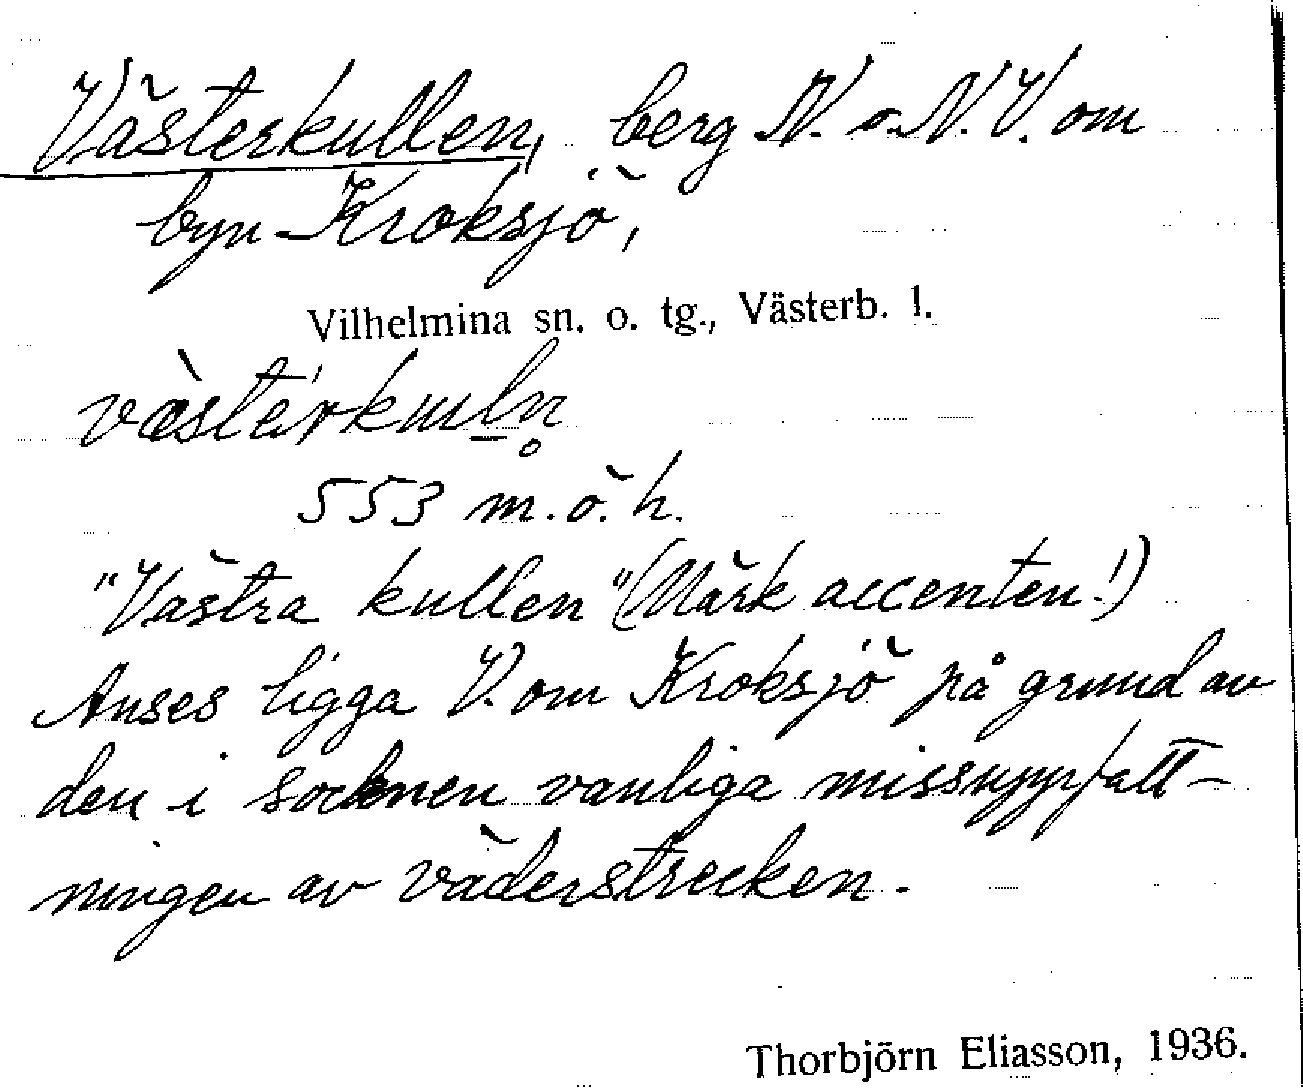 Västerkullen, berg N. o. N.V. om
byn Kroksjö,
Vilhelmina sn. o. tg., Västerb. l.
553 m. ö. h.
"Västra kullen" (Märk accenten!)
Anses ligga V. om Kroksjö på grund av
den i socknen vanliga missuppfatt-
ningen av väderstrecken.
Thorbjörn Eliasson, 1936.